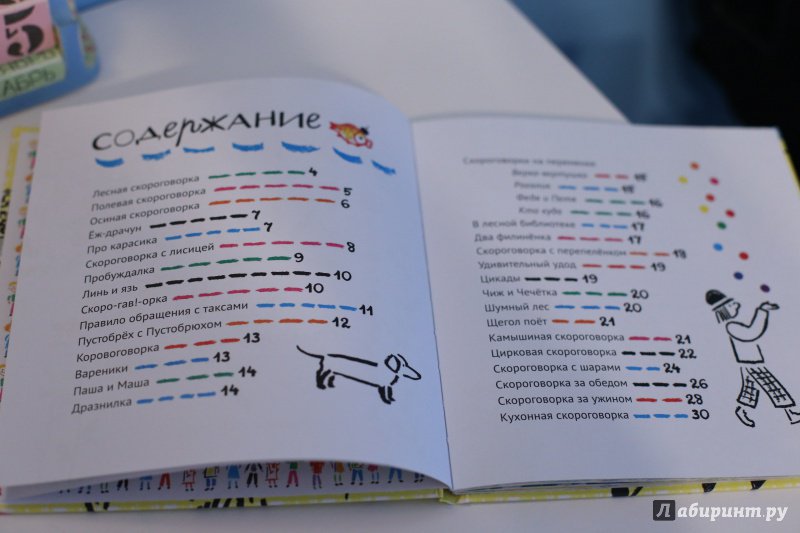 5
АБРЬ
СОДЕРЖАНИЕ
Лесная скороговорка 4
Полевая скороговорка 5
Осиная скороговорка 6
Ёж-драчун 7
Про карасика 7
Скороговорка с лисицей 8
Пробуждалка 9
Линь и язь 10
Скоро-гав!-орка 10
Правило обращения с таксами 11
Пустобрёх с Пустобрюхом 12
Коровоговорка 13
Вареники 13
Паша и Маша 14
Дразнилка 14
Скороговорки на переменке
15
15
Федя и Петя 16
Кто куда 16
В лесной библиотеке 17
Два филинёнка 17
Скороговорка с перепелёнком 18
Удивительный удод 19
Цикады 19
Чиж и Чечётка 20
Шумный лес 20
Щегол поёт 21
Камышиная скороговорка 21
Цирковая скороговорка 22
Скороговорка с шарами 24
Скороговорка за обедом 26
Скороговорка за ужином 28
Кухонная скороговорка 30
Лабиринт.ру